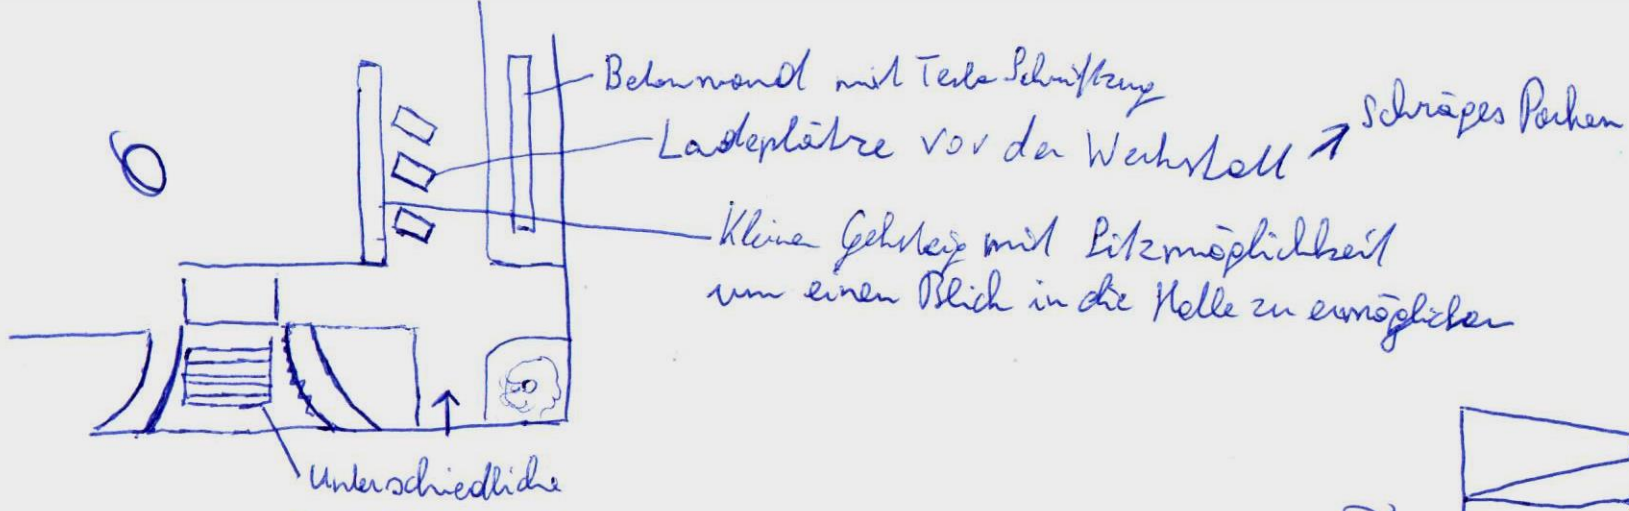 Betonwand mit Tesla Schriftzug
Ladeplätze vor der Werkstatt ↗ schräges Parken
Kleiner Gehsteig mit Sitzmöglichkeit
um einen Blick in die Halle zu ermöglichen
Unterschiedliche